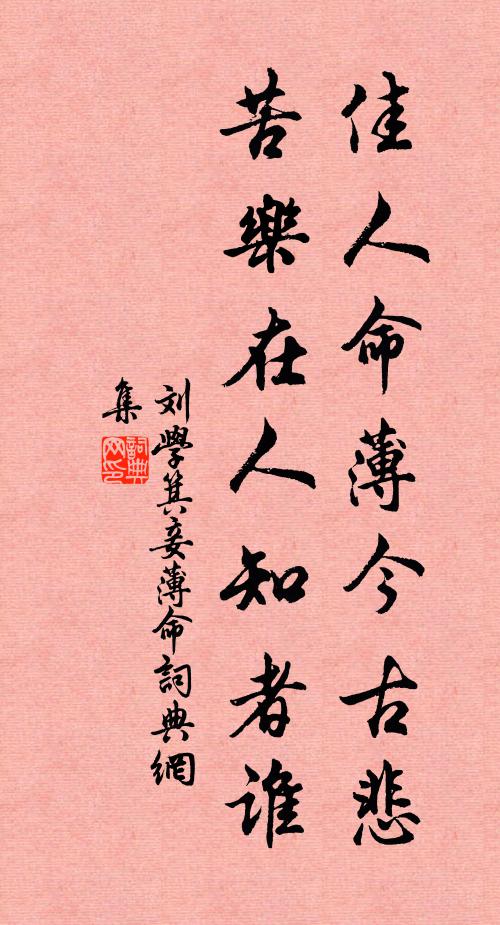 佳人命薄今古悲
苦樂在人知者誰
刘學箕妾薄命詞典網
集
詞典
网印